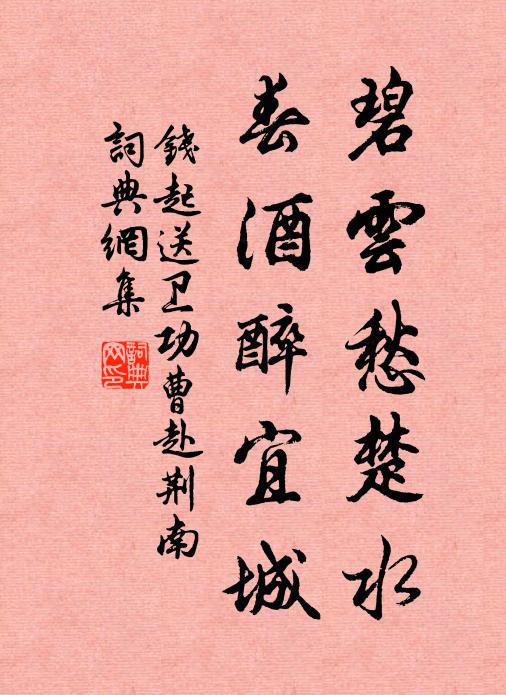 碧雲愁楚水
春酒醉宜城
錢起送卫功曹赴荆南
詞典網集
詞典
网印